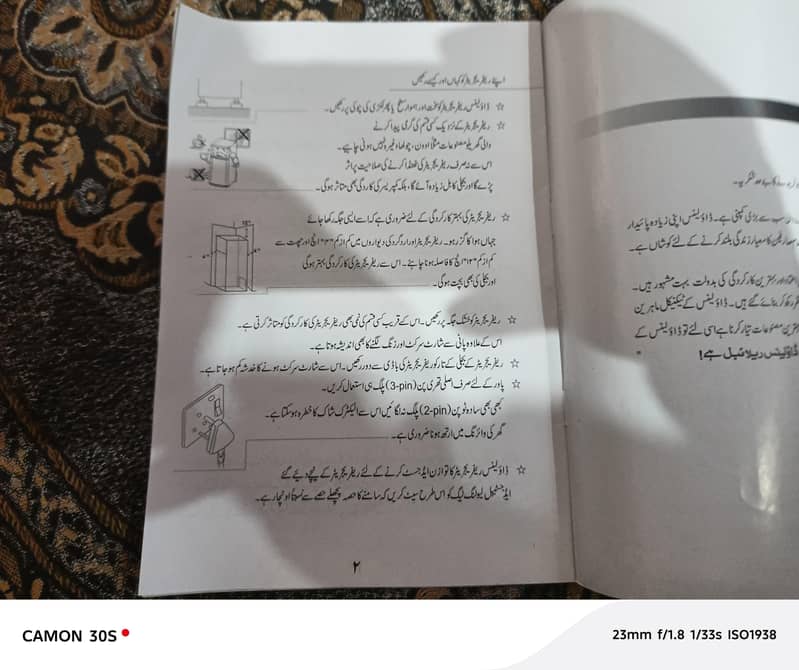 اپنے ریفریجریٹر کو کہاں اور کیسے رکھیں
☆ ڈاؤلینس ریفریجریٹر کو سخت اور ہموار سطح یا پھر لکڑی کی چوکی پر رکھیں۔
☆ ریفریجریٹر کے نزدیک کسی قسم کی گرمی پیدا کرنے
والی گھریلو مصنوعات مثلاً اوون، چولھا وغیرہ نہیں ہونی چاہیے۔
اس سے نہ صرف ریفریجریٹر کی ٹھنڈا کرنے کی صلاحیت پر اثر
پڑے گا اور بجلی کا بل زیادہ آئے گا، بلکہ کمپریسر کی کارکردگی بھی متاثر ہوگی۔
☆ ریفریجریٹر کی بہتر کارکردگی کے لئے ضروری ہے کہ اسے ایسی جگہ رکھا جائے
جہاں ہوا کا گزر ہو۔ ریفریجریٹر اور اردگرد کی دیواروں میں کم از کم انچ اور چھت سے
کم از کم "۱۲" انچ کا فاصلہ ہونا چاہئے۔ اس سے ریفریجریٹر کی کارکردگی بہتر ہوگی
اور بجلی کی بھی بچت ہوگی۔
☆ ریفریجریٹر کو خشک جگہ پر رکھیں۔ اس کے قریب کسی قسم کی نمی بھی ریفریجریٹر کی کارکردگی کو متاثر کرتی ہے۔
اس کے علاوہ پانی سے شارٹ سرکٹ اور زنگ لگنے کا بھی اندیشہ ہوتا ہے۔
☆ ریفریجریٹر کے بجلی کے تار کو ریفریجریٹر کی باڈی سے دور رکھیں۔ اس سے شارٹ سرکٹ ہونے کا خدشہ کم ہو جاتا ہے۔
☆ پاور کے لئے صرف اصلی تھری پن (3-pin) پلگ ہی استعمال کریں۔
کبھی بھی سادہ ٹو پن (2-pin) پلگ نہ لگائیں اس سے الیکٹرک شاک کا خطرہ ہوسکتا ہے۔
گھر کی وائرنگ میں ارتھ ہونا ضروری ہے۔
☆ ڈاؤلینس ریفریجریٹر کا توازن ایڈجسٹ کرنے کے لئے ریفریجریٹر کے نیچے دیئے گئے
ایڈجسٹیبل لیولنگ لیگ کو اس طرح سیٹ کریں کہ سامنے کا حصہ پچھلے حصے سے نسبتاً اونچا رہے۔
۲
شکریہ۔
سب سے بڑی کمپنی ہے۔ ڈاؤلینس اپنی زیادہ پائیدار
صارفین کا معیار زندگی بلند کرنے کے لئے کوشاں ہے۔
اور بہترین کارکردگی کی بدولت بہت مشہور ہیں۔
کر بنائے گئے ہیں۔ ڈاؤلینس کے ٹیکنیکل ماہرین
مصنوعات تیار کرنا ہے اسی لئے تو ڈاؤلینس کے
ڈاؤلینس ریلائبل ہے!
CAMON 30S
23mm f/1.8 1/33s ISO1938